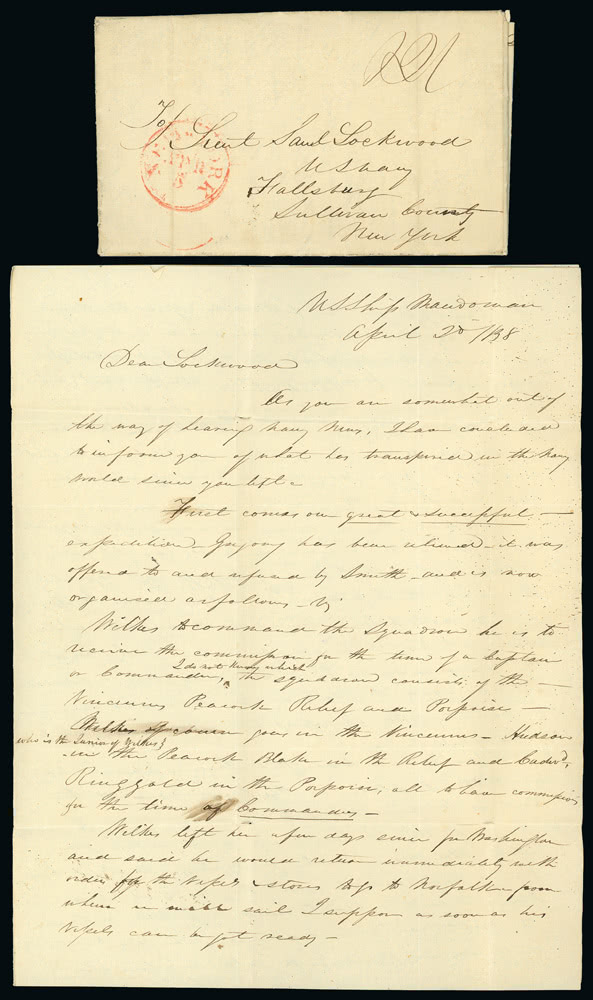 To/ Lieut Saml Lockwood
US Navy
Fallsburg
Sullivan County
New York
NEW YORK
APR
US Ship Macedonian
April 2d /38
Dear Lockwood
As you are somewhat out of
the way of hearing Navy News, I have concluded
to inform you of what has transpired in the Navy
World since you left -
First comes our great & successful -
expedition - Gregory has been relieved - it was
offered to and refused by Smith - and is now
organised as follows - Viz
Wilkes to command the Squadron he is to
receive the commission for the time of a Captain
I do not know which
or Commander, the squadron consists of the -
Vincennes Peacock Relief and Porpoise -
Wilkes of course goes in the Vincennes - Hudson
who is the Junior of Wilkes }
in the Peacock Blake in the Relief and Cadwd.
Ringgold in the Porpoise, all to have commissions
for the time of Commanders -
Wilkes left here a few days since for Washington
and said he would return immediately with
orders for the Vessels & stores to go to Norfolk from
where he will sail I suppose as soon as his
Vessels can be got ready -